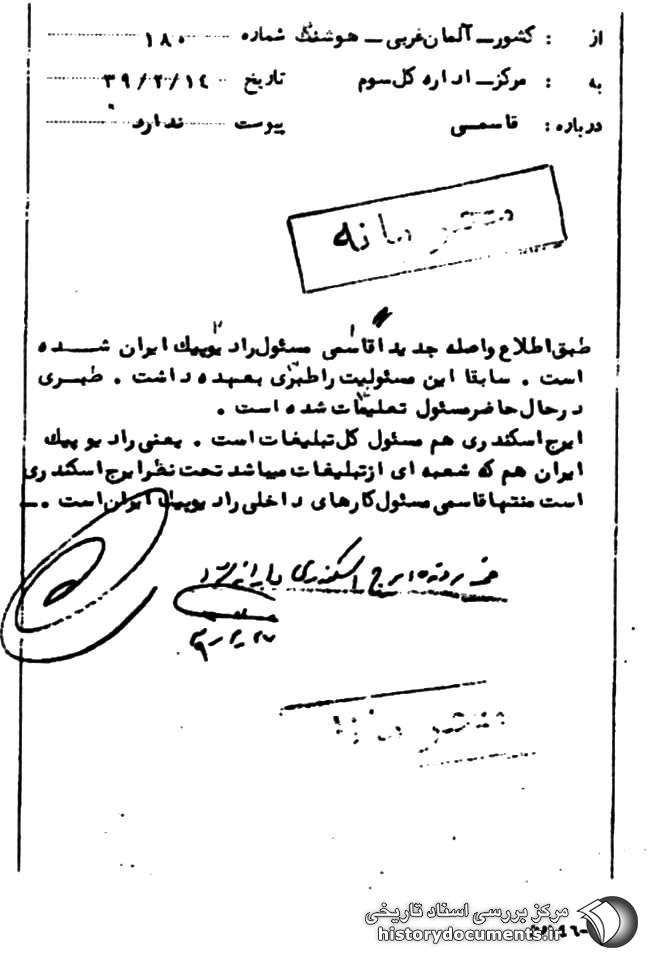 از : کشور ـ آلمان غربی ـ هوشنگ شماره ۱۸۰
به : مرکز ـ اداره کل سوم تاریخ ۳۹/۲/۱۴
درباره : قاسمی پیوست ندارد
محرمانه
طبق اطلاع واصله جدیدا قاسمی مسئول رادیو پیک ایران شده
است . سابقا این مسئولیت را طبری بعهده داشت . طبری
در حال حاضر مسئول تعلیمات شده است .
ایرج اسکندری هم مسئول کل تبلیغات است . یعنی رادیو پیک
ایران هم که شعبه ای از تبلیغات میباشد تحت نظر ایرج اسکندری
است منتها قاسمی مسئول کارهای داخلی رادیو پیک ایران است . ـ
ایرج اسکندری
محرمانه
مرکز بررسی اسناد تاریخی
historydocuments.ir